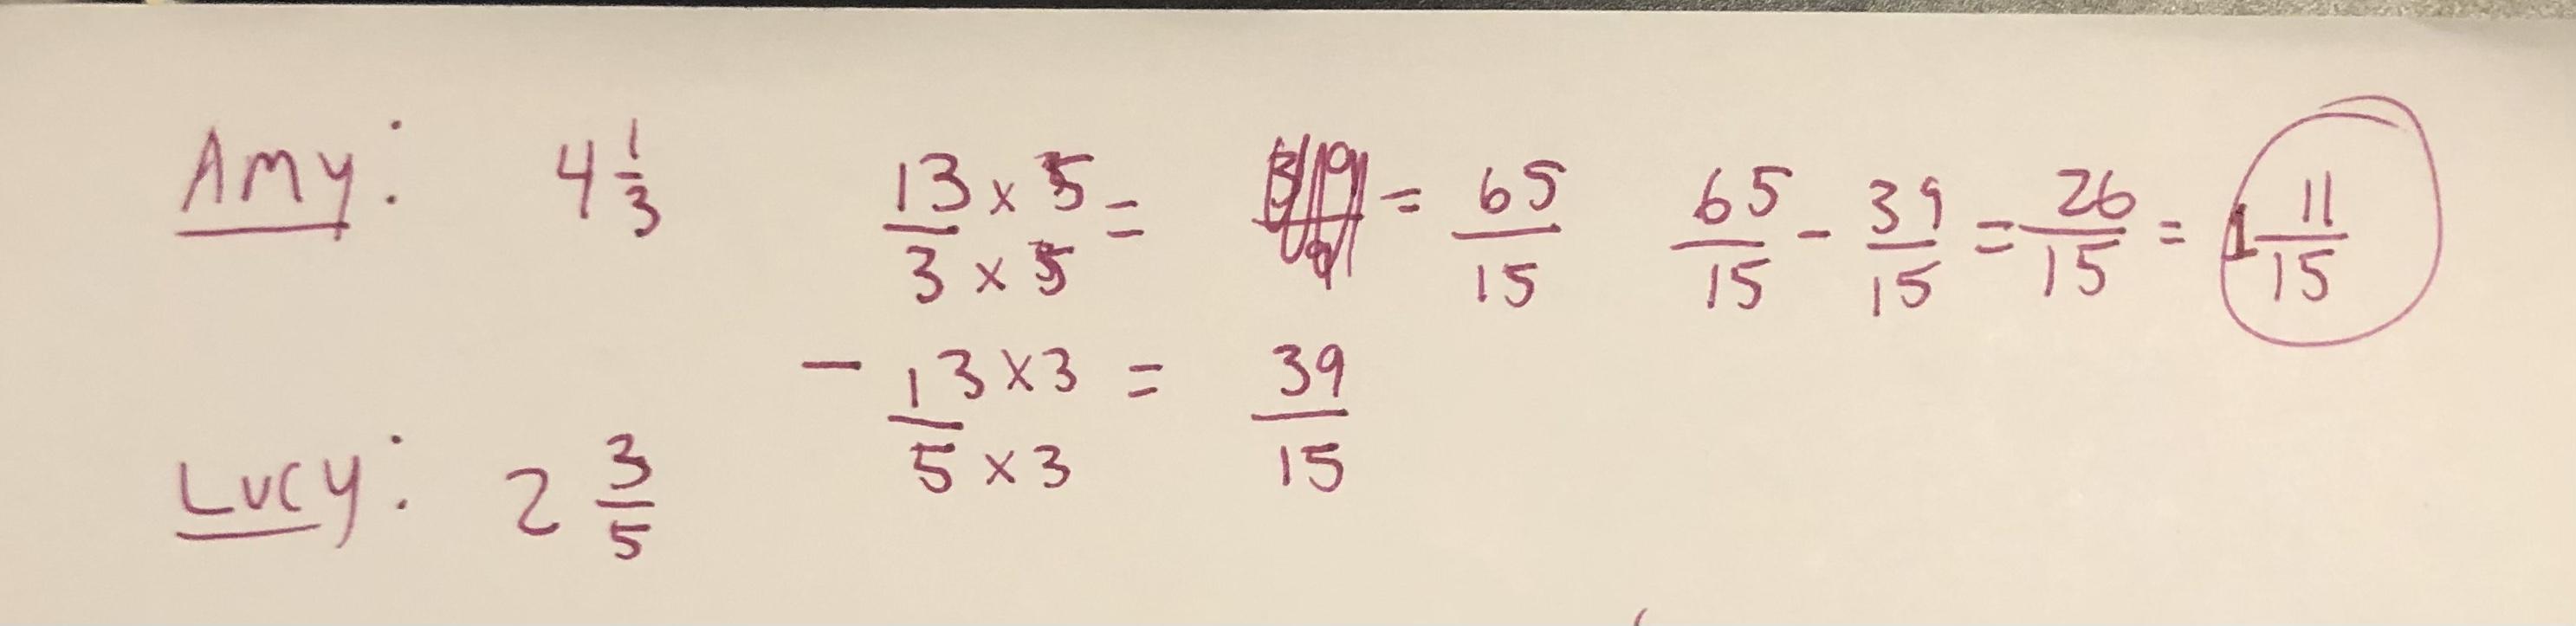 Amy: 4 1/3 13/3 × 5/5 = = 65/15 65/15 - 39/15 = 26/15 = 1 11/15
- 13/5 × 3/3 = 39/15
Lucy: 2 3/5